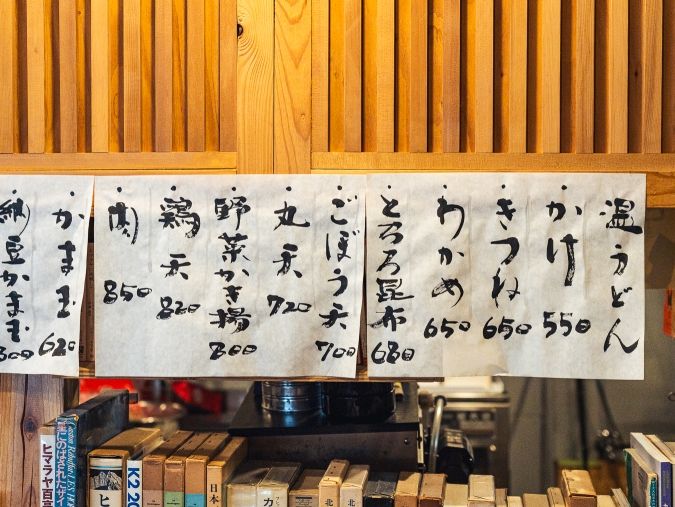 温うどん
かけ 550
きつね 650
わかめ 650
とろろ昆布 680
ごぼう天 700
丸天 720
野菜かき揚 800
鶏天 820
肉 850
かま玉 620
納豆かま玉 800
ヒマラヤ百高
K2 20
日本
北
北